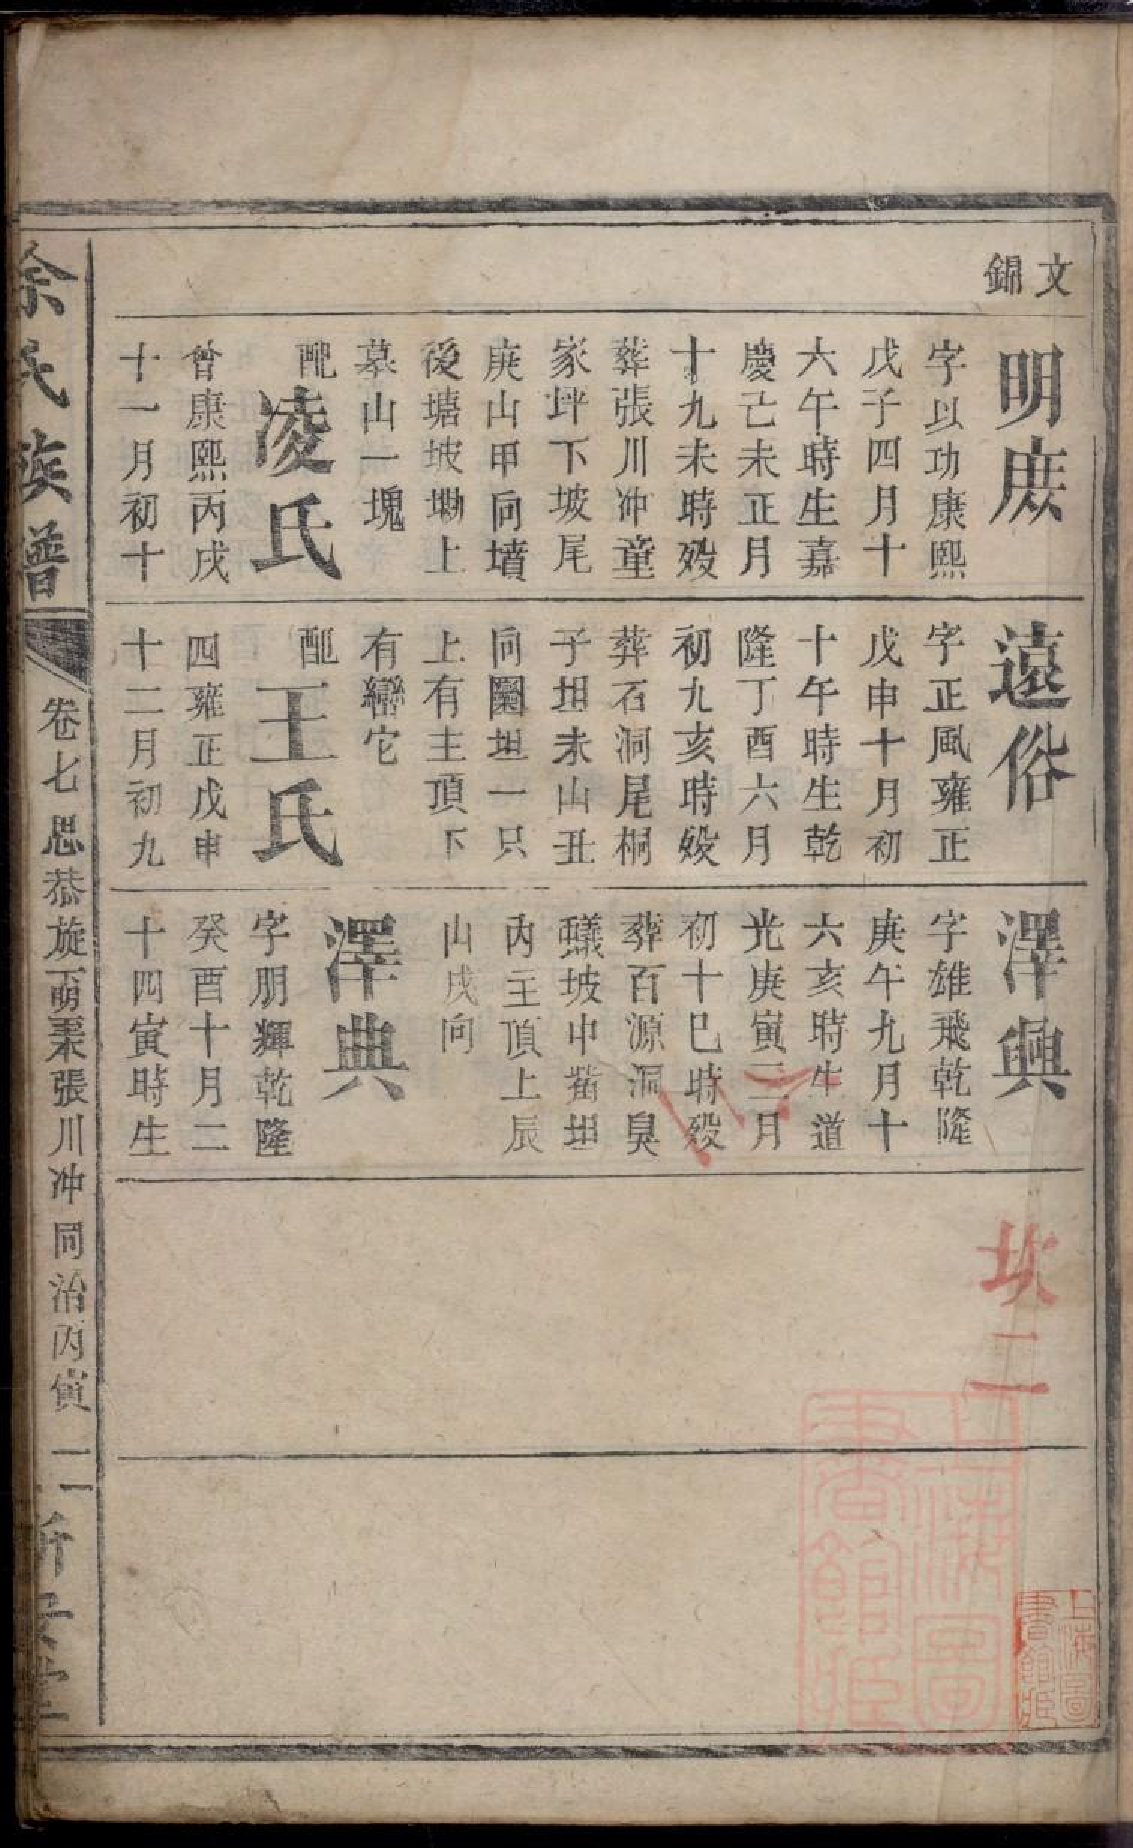 文
錦
明庻
字以功康熙
戊子四月十
六午時生嘉
慶己未正月
十九未時殁
葬張川冲童
家坪下坡尾
庚山甲向墳
後塘坡墈上
墓山一塊
配
凌氏
曾康熙丙戌
十一月初十
遠俗
字正風雍正
戊申十月初
十午時生乾
隆丁酉六月
初九亥時殁
葬石洞尾桐
子坦未山丑
向圞坦一只
上有主頂下
有巒它
配
王氏
四雍正戊申
十二月初九
澤興
字雄飛乾隆
庚午九月十
六亥時生道
光庚寅三月
初十巳時殁
葬百源洞臭
蟻坡中嘴坦
內主頂上辰
山戌向
澤典
字朋輝乾隆
癸酉十月二
十四寅時生
坎二一
余氏族譜
卷七
思恭旋下朝
張川冲
同治丙寅
二
新安堂
上海圖書館
上海圖書館